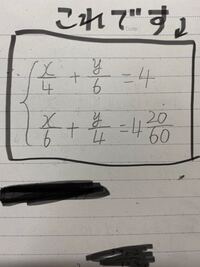 これです↓
x/4 + y/6 = 4
x/6 + y/4 = 4 20/60